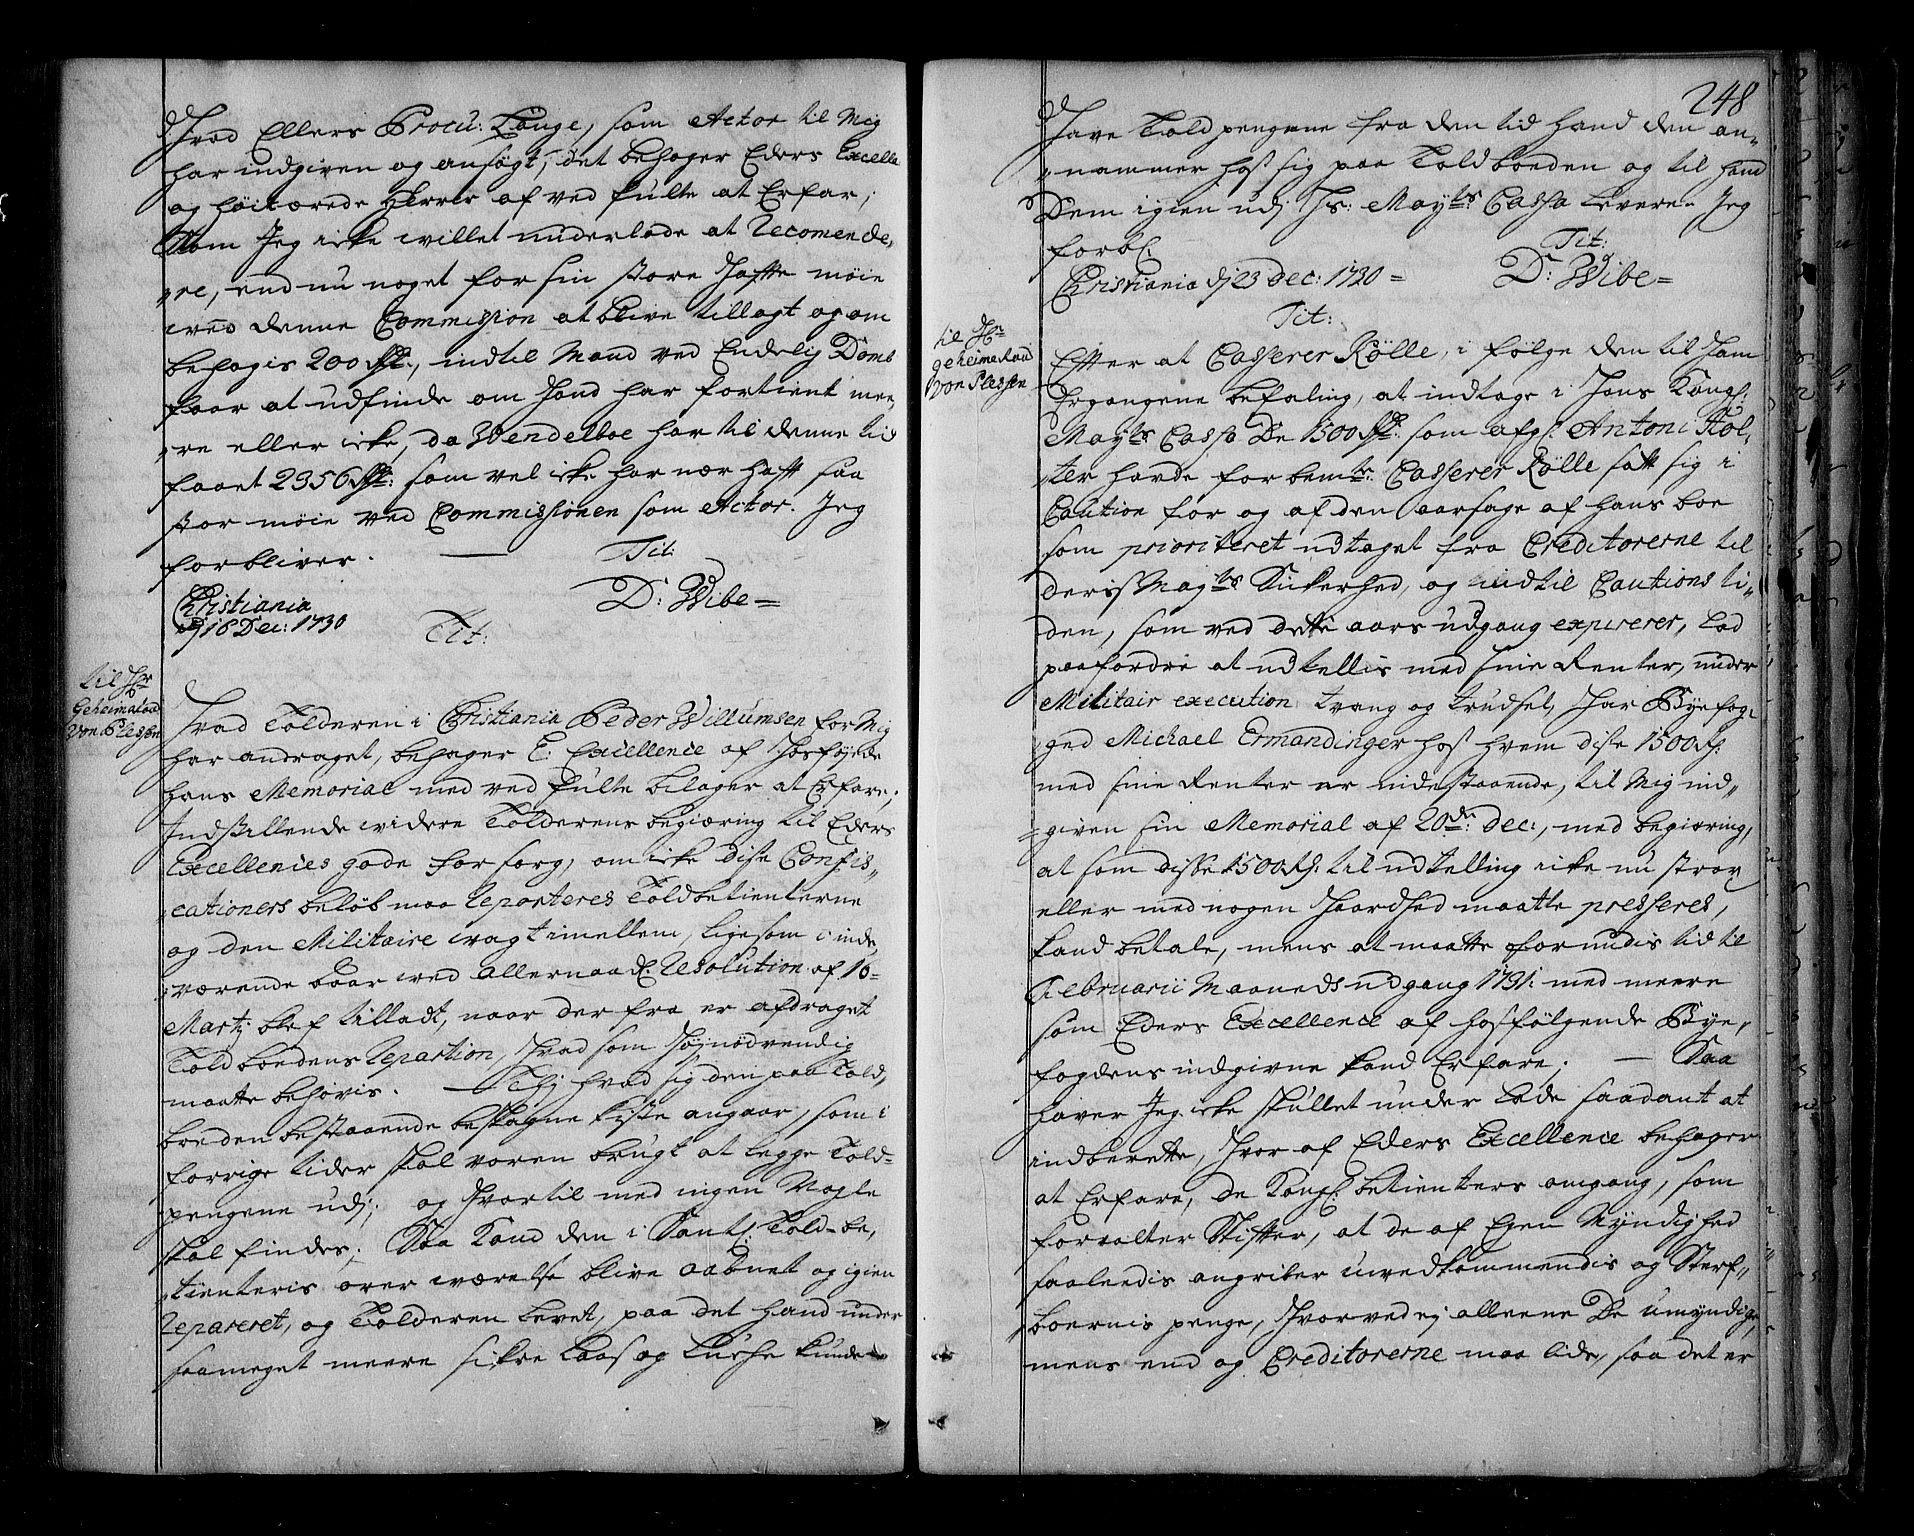 Hvad Ellers Procu: Tønge, som Actor til Mig
har indgiven og ansøgt, det behager Eders Excelle
og høitærede Herrer af ved fulte at Erfar;
Som Jeg icke willet underlade at Recomende,
re, end nu noget for sin store Hafte møie
wed denne Commission at blive tillagt og om
behagis 200 Rd:, indtil Mand ved Endelig Domb
faar at udfinde om Hand har fortient mee,
re eller icke, da Wendelboe har til denne tid
faaet 2356 Rd: som vel icke har nær haft saa
stor møie ved Commissionen som Actor. Jeg
forbliver. — Tit:
Christiania D: Wibe =
dj 16 Dec: 1730
Tit:
til Hr
Geheimeraad
Von Plessen
Hvad Tolderen i Christiania Peder Willumsen for Mig
har andraget, behager E: Excellence af Hosføyede
hans Memorial med ved fulte bilager at Erfare;
Indstillende widere Tolderens begiæring til Eders
Excellencies gode forsorg, om icke disse Confis,,
cationers beløb maa Reparteres Toldbetienterne
og den Militaire wagt imellem, ligesom i inde,
værende Aar wed allernaad: Resolution af 16=
Martj blef tilladt, naar der fra er afdraget
Toldboedens Repartion, Hvad som Højnødvendig
maatte behøvis. — Thj hvad sig den paa Told,
boeden bestaaende beslagne kiste angaar, som i
forrige tider skal voren brugt at legge Told=
pengene udj; og Hvortil med ingen Nøgle
skal findes; Saa Kand den i Samtl: Told=be,
tienteris over wærelse blive aabnet og igien
Repareret, og Tolderen levet, paa det hand under
saameget meere sikre Laas og Lucke kunde
248
Have Toldpengene fra den tid hand den an,,
nammer hos sig paa Toldboeden og til hand
Dem igien udj Hs: Mayts Cassa levere. Jeg
forbl: Tit:
Christiania dj 23 Dec: 1730 = D: Wibe =
Tit:
til Hr
geheimeraad
von Plessen
Efter at Casserer Rølle, i følge den til Ham
Ergangene befaling, at indtage i Hans Kongl:
Mayts Cassa De 1500 Rd: som afg: Antoni Røl,
ter hafde for bemte: Casserer Rølle satt sig i
Caution for og af den aarsage af hans boe
som prioriteret udtaget fra Creditorerne til
deris Mayts Sikerhed, og indtil Cautions ti,,
den, som ved dette aars udgang expirerer, lod
paafordre at udtellis med sine Renter, under
Militair execution tvang og trudsel, Har Byefog,
ged Michael Ermandinger hos hvem disse 1500 Rd:
med sine Renter er indestaaende, til Mig ind,,
given sin Memorial af 20de: dec:, med begiæring,
at som disse 1500 Rd: til udtelling icke nu strax
eller med nogen Haardhed maatte presseres,
kand betale, mens at maatte forundis tid til
Februarii Maaneds udgang 1731: med meere
som Eders Excellence af hosfølgende Bye,
fogdens indgivne kand Erfare. — Saa
haver Jeg icke skullet under lade saadant at
indberette, Hvor af Eders Excellence behager
at Erfare, de Kongl: betienters omgang, som
forvalter Skifter, at de af Egen Myndighed
saaledis angriber uvedkommendis og Sterf,,
boernis penge, Hvorved ej alleene De umyndige,
mens end og Creditorerne maa lide, saa det er